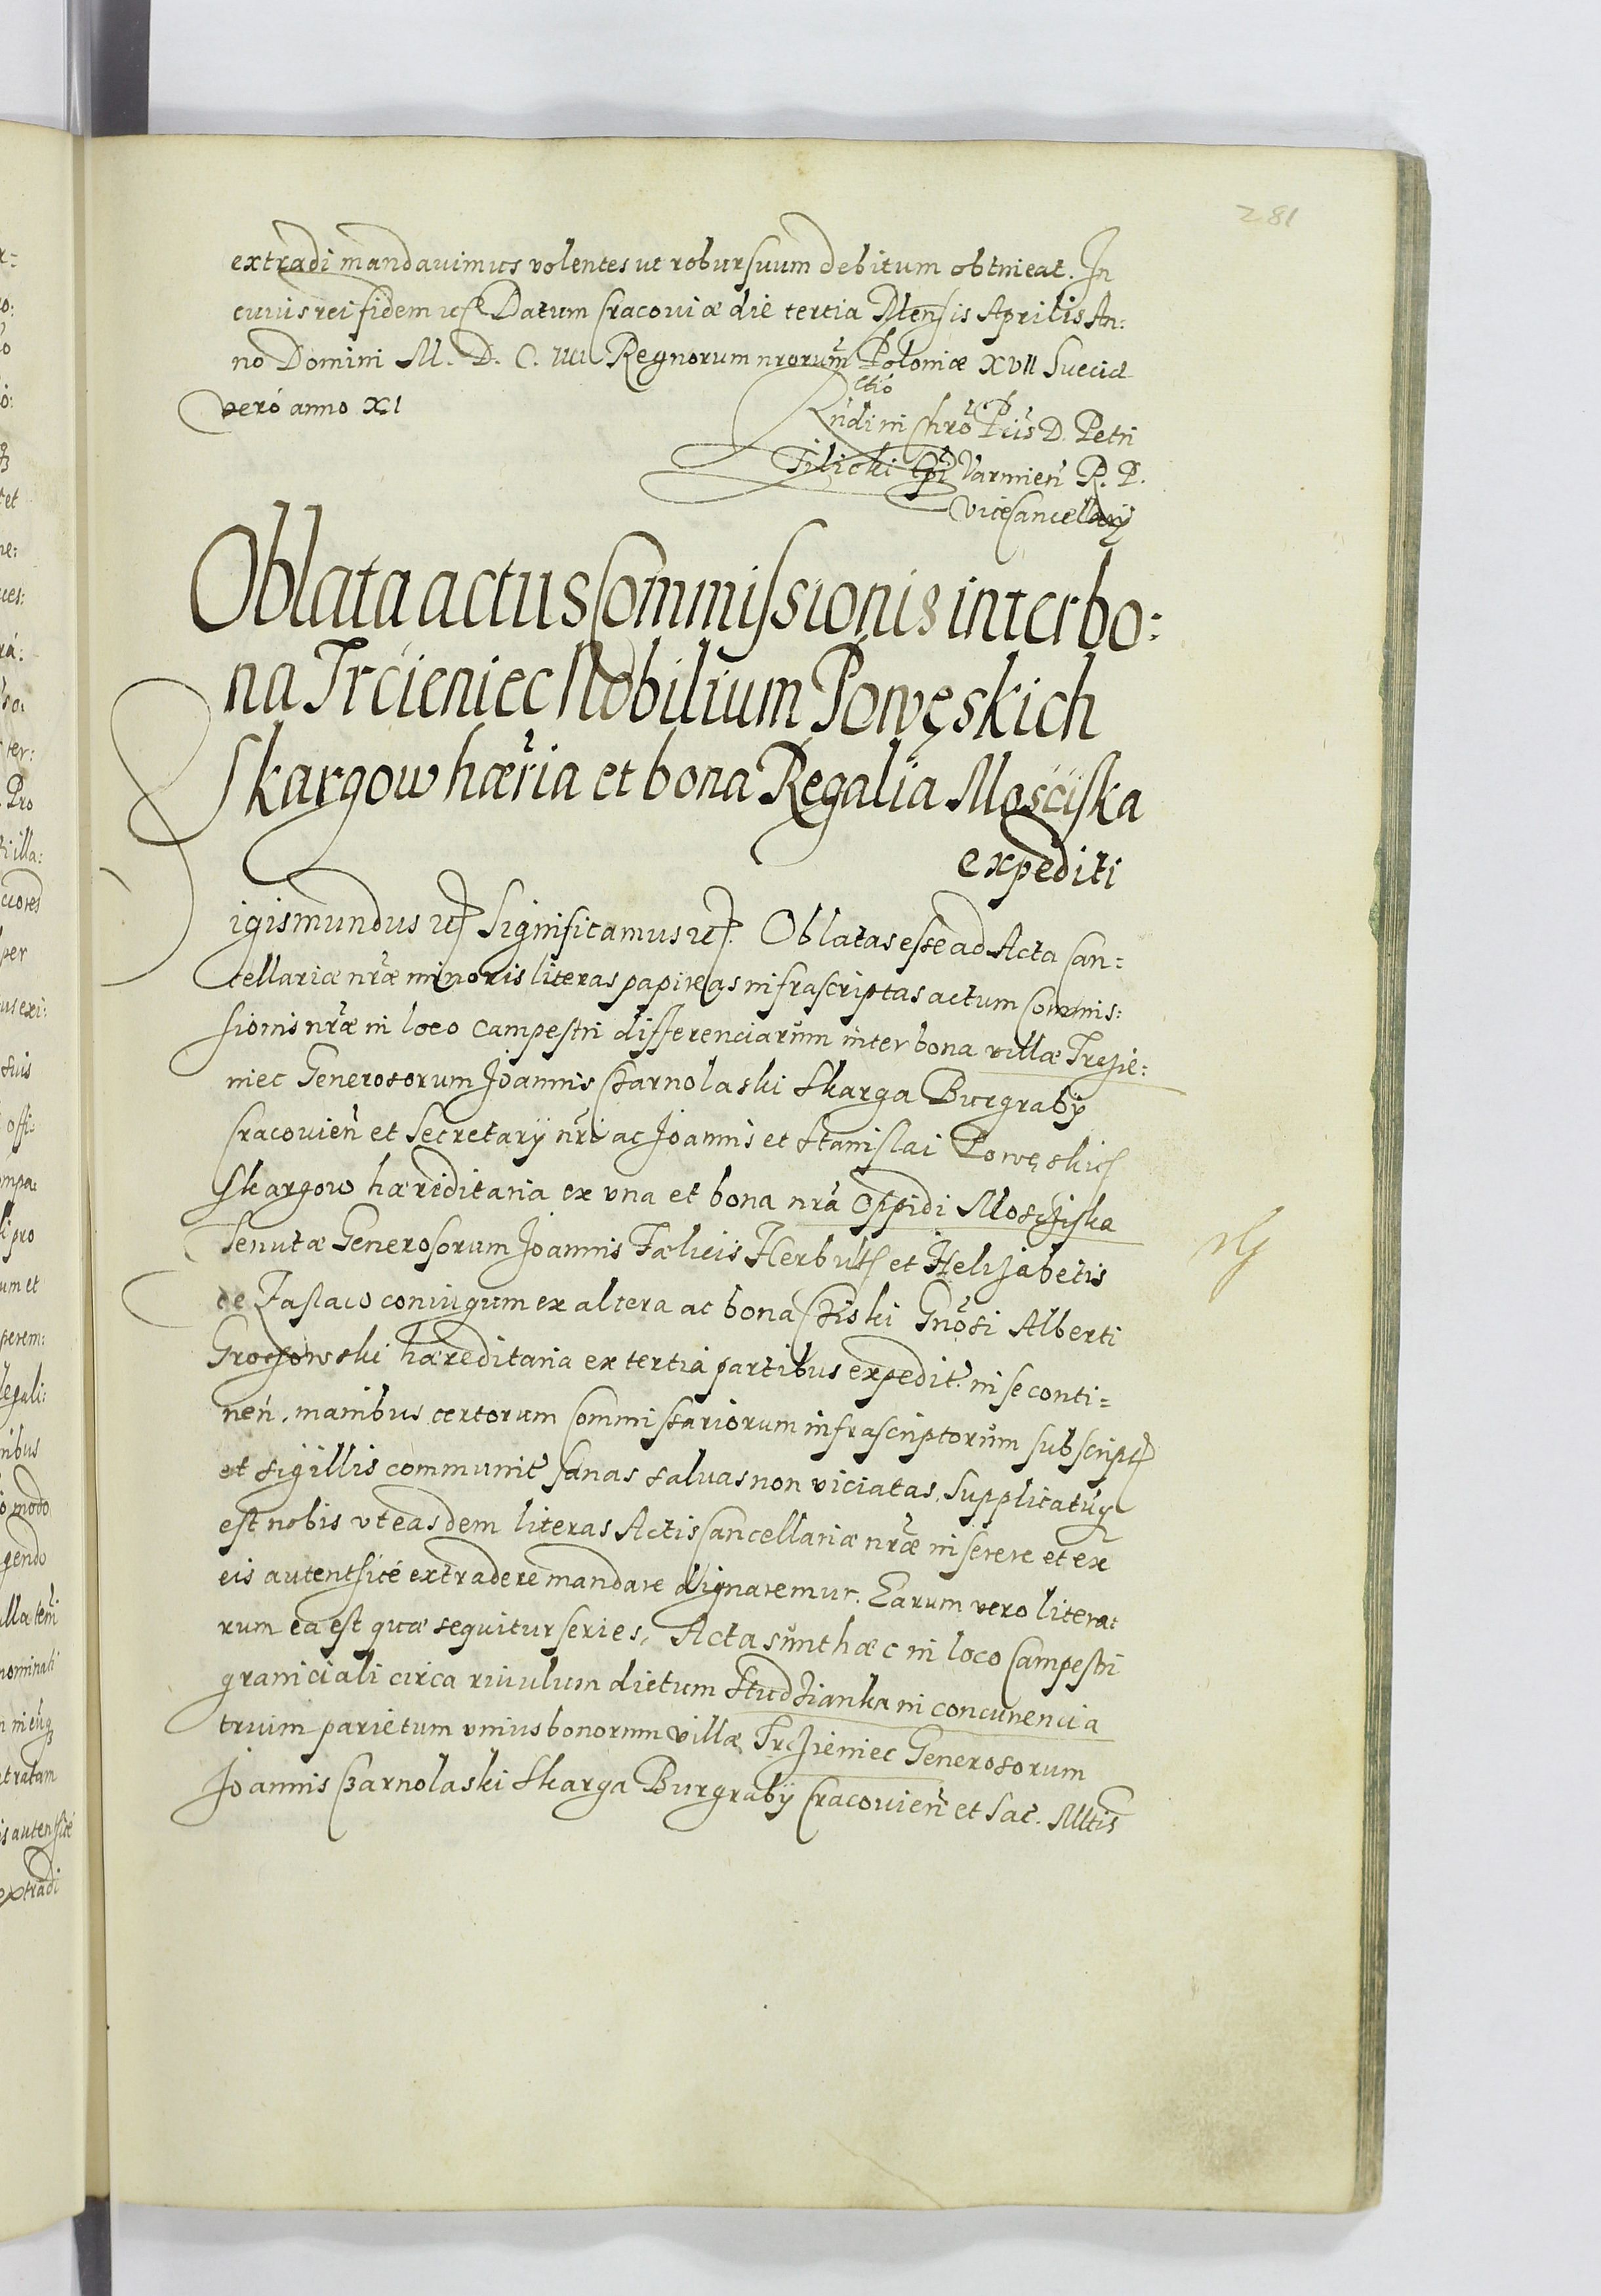 281
extradi mandauimus volentes ut robur suum debitum obtineat. In
cuius rei fidem etc Datum Cracouiæ die tertia Mensis Aprilis An:
no Domini M. D. C. IIII Regnorum nrorum Poloniæ XVII Sueciæ
vero anno XI
ctio
Rndi in Chro Pris D. Petri
Tilicki Epi Varmien R. P.
ViceCancellarij
Oblata actus Commissionis inter bo:
na Trcieniec Nobilium Powęskich
Skargow hæria et bona Regalia Mosciska
expediti
igismundus etc Significamus etc. Oblatas esse ad Acta Can=
cellariæ nræ minoris literas papireas infrascriptas actum Commis:
sionis nræ in loco campestri differenciarum inter bona villæ Trzcie:
niec Generosorum Joannis Czarnolaski Skarga Burgrabij
Cracouien et Secretarij nri ac Joannis et Stanislai Powęskich
Skargow hæreditaria ex una et bona nra Oppidi Mosciska
Tenutæ Generosorum Joannis Fælicis Herbult et Helizabetis
de Zaslaw coniugum ex altera ac bona Czyski Gnosi Alberti
hæreditaria ex tertia partibus expedit. in se conti=
nen. manibus certorum Commissariorum infrascriptorum subscript
et sigillis communit sanas saluas non viciatas. Supplicatumque
est nobis ut easdem literas Actis Cancellariæ nræ inserere et ex
eis autentice extradere mandare dignaremur. Earum vero litera
rum ea est quæ sequitur series. Acta sunt hæc in loco Campestri
graniciali circa riuulum dictum Studzianka in concurencia
trium parietum unius bonorum villæ Trzcieniec Generosorum
Joannis Czarnolaski Skarga Burgrabij Cracouien et Sac. Mttis